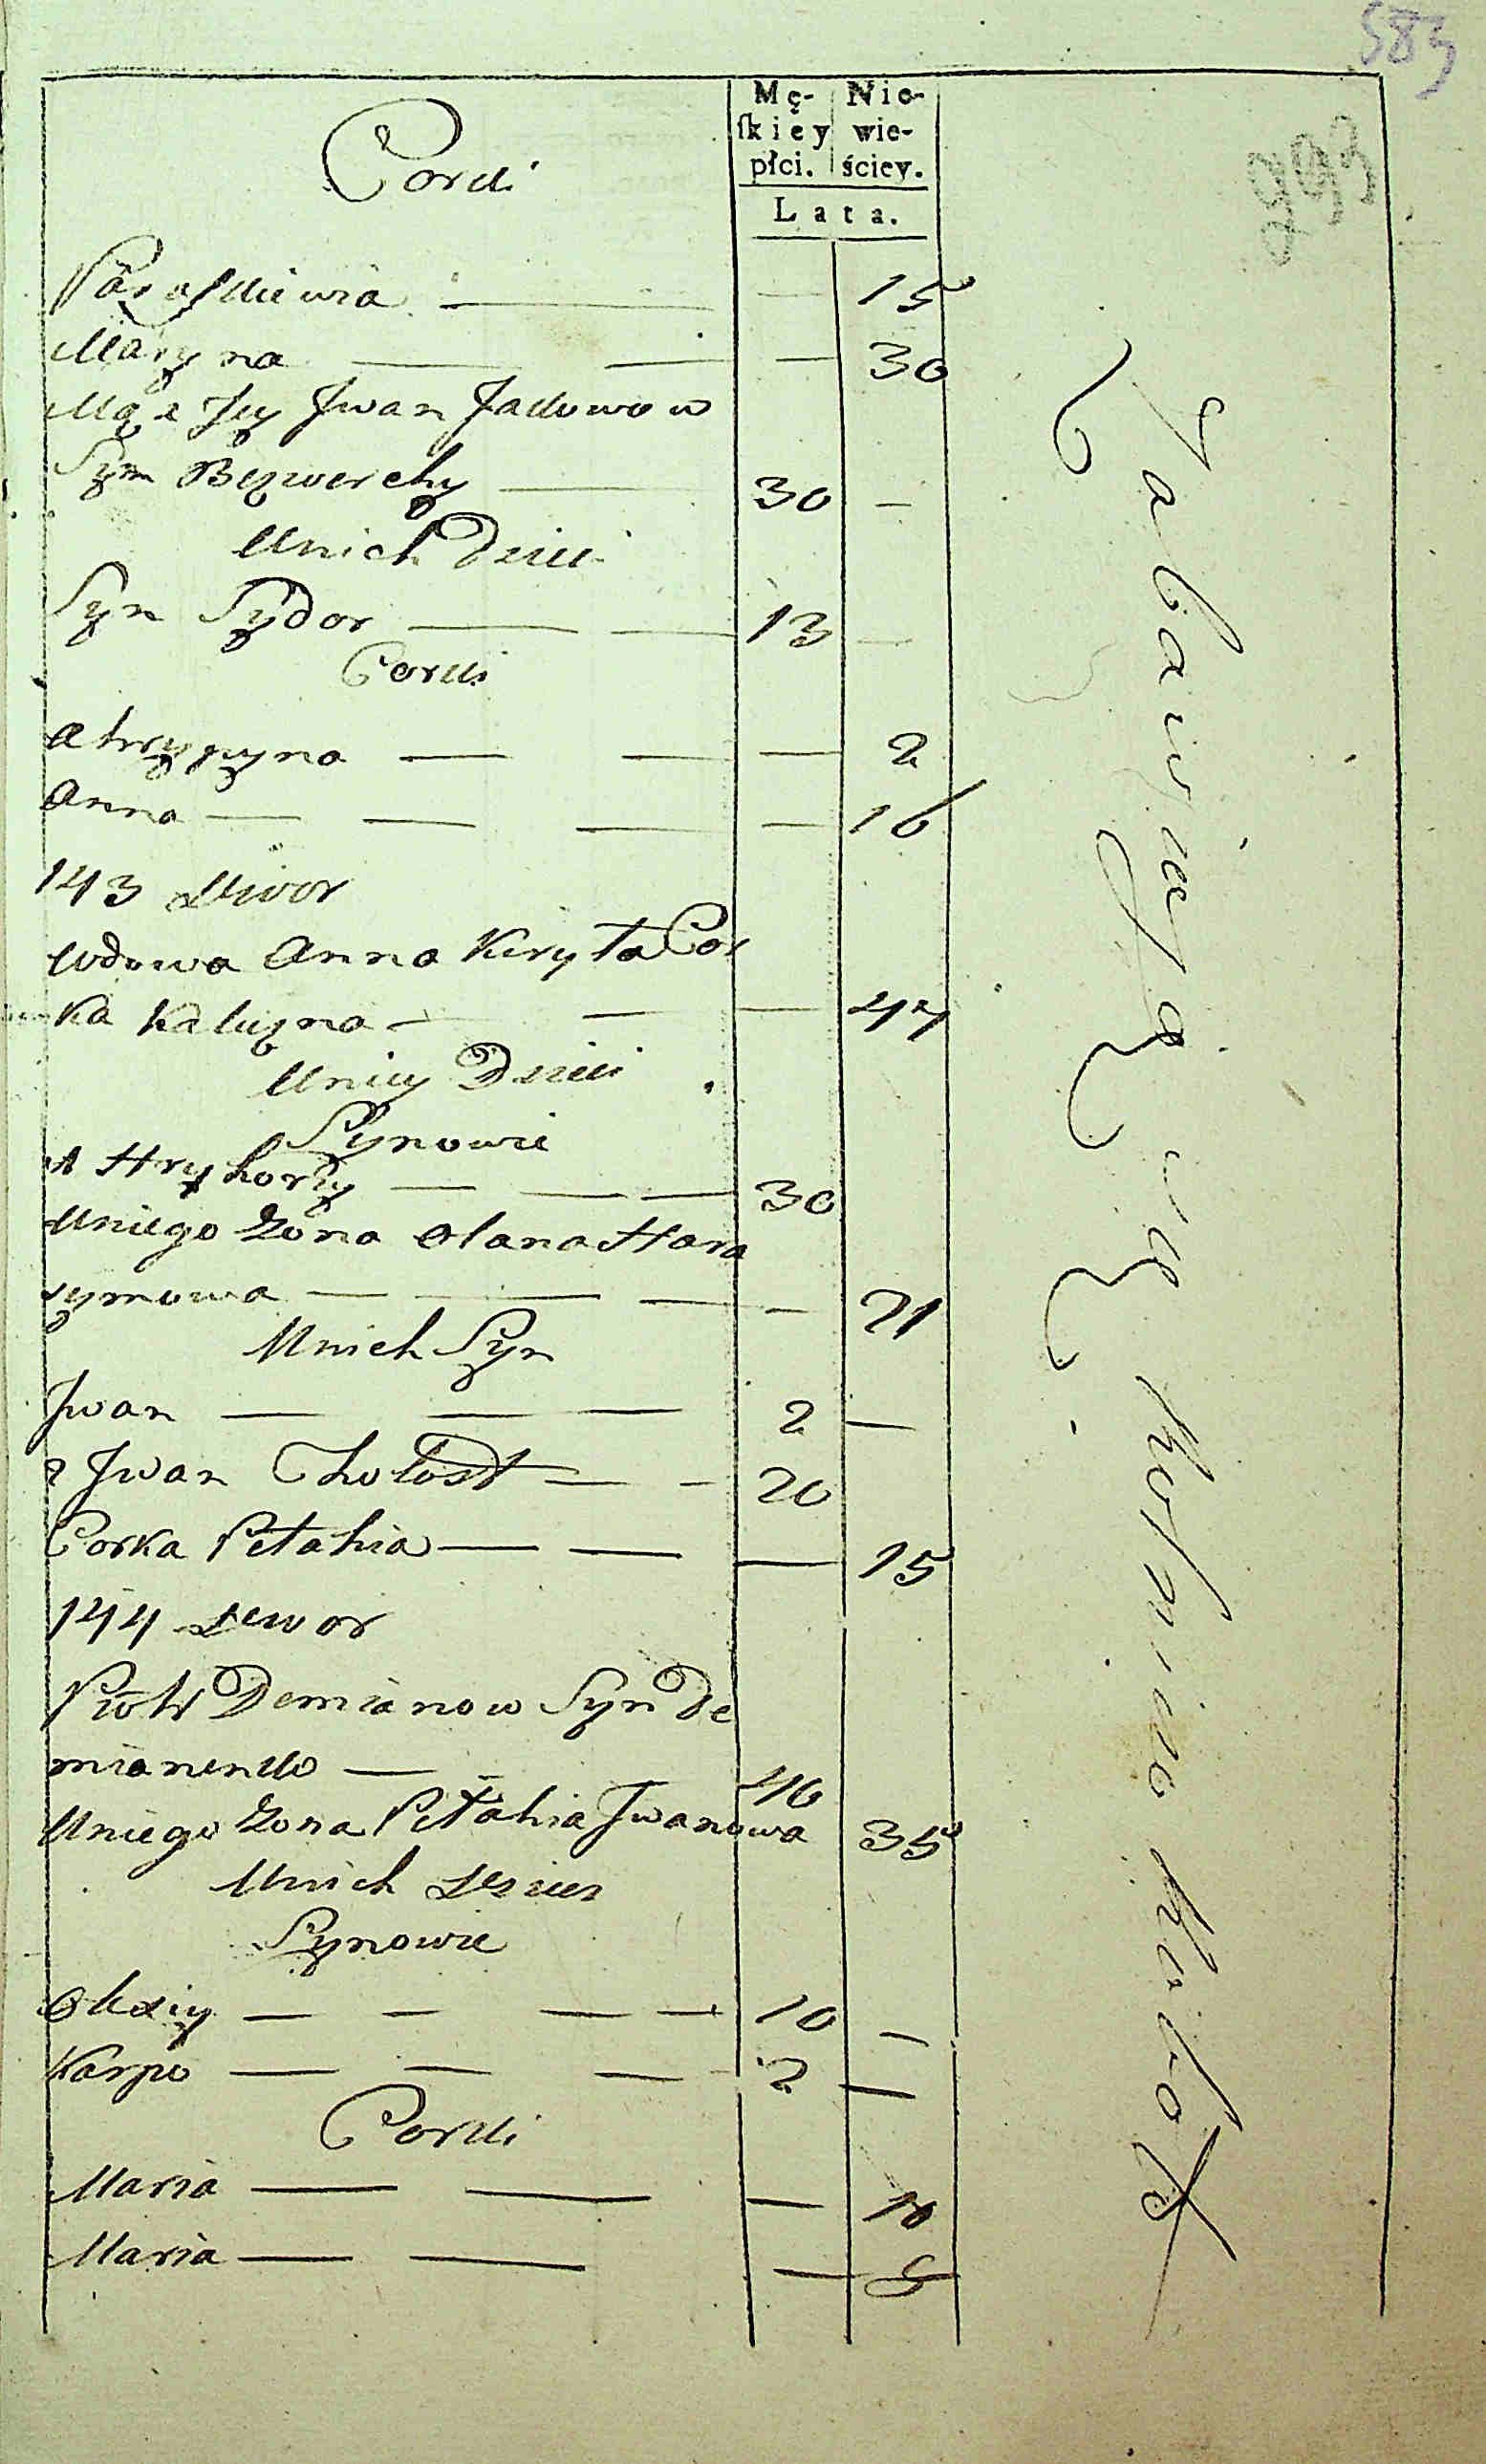 583
993
Mę- Nie-
ſkiey wie-
płci. ściey.
Lata.
Corki
Paraskiewia — — 15
Maryna — — — 30
Mąż Jey Jwan Jackowow
Syn Bezwerchy — 30 —
Unich Dzieci
Syn Sydor — — 13 —
Corki
Ahrypyna — — — 2
Anna — — — — 16
143 Dwor
Wdowa Anna Kiryła Cor
ka Kaluzna — — — 47
Uniey Dzieci
Synowie
1 Hryhory — — — 30
Uniego Zona Olana Hara
symowa — — — — 21
Unich Syn
Jwan — — — 2 —
2 Jwan Chołost — — 20
Corka Petahia — — — 15
144 Dwor
Piotr Demianow Syn De
mianenko — — 46
Uniego Zona Petahia Jwanowa 35
Unich Dzieci
Synowie
Olexiy — — — — 10 —
Karpo — — — 2 —
Corki
Maria — — — 10
Maria — — — 5
Zabawiaią się rolnictwem